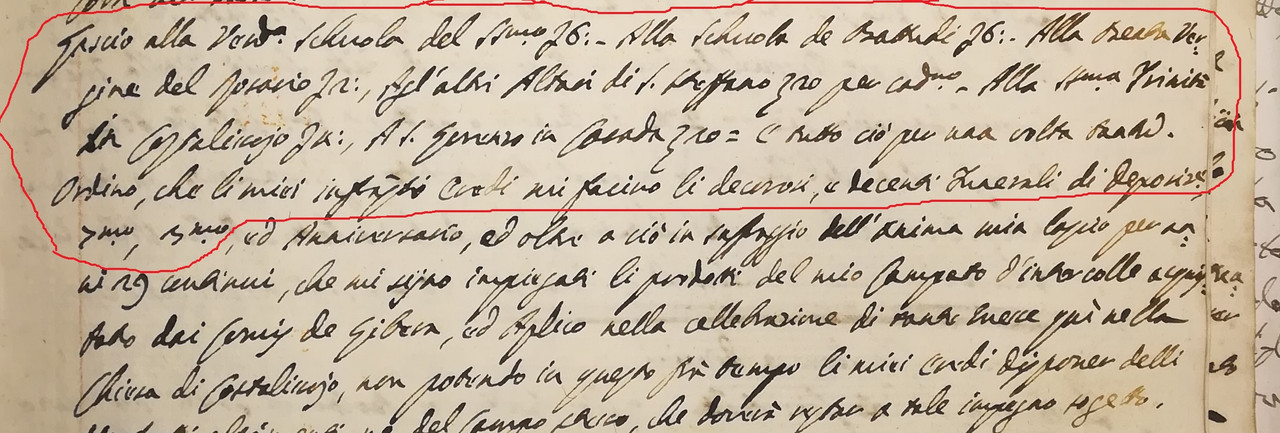 Lascio alla Vend.a Schuola del SS.mo 76:- Alla Schuola de Battudi 76:- Alla Beata Ver-
gine del Rosario 72:, Agl'altri Altari di S. Steffano 720 per cad.no - Alla SS.ma Trinità
in Costalissojo 74:, A S. Lorenzo in Casada 720 = E tutto ciò per una volta tanto.
Ordino, che li miei infrñti Eredi mi faccino li decorosi, e decenti Funerali di Deposize
7.mo, 3.mo, ed Anniversario, ed oltre a ciò in suffragio dell'anima mia lascio per an-
ni 29 continui, che mi sijno impiegati li prodotti del mio Campetto d'intercolle acquis-
tato dai de Gibera, ed Aplico nella cellebrazione di tante Messe quì nella
Chiesa di Costalissojo, non potendo in questo frà tempo li miei Eredi disponer delli
del Campo stesso, che dovrà restar a tale impegno sogetto.